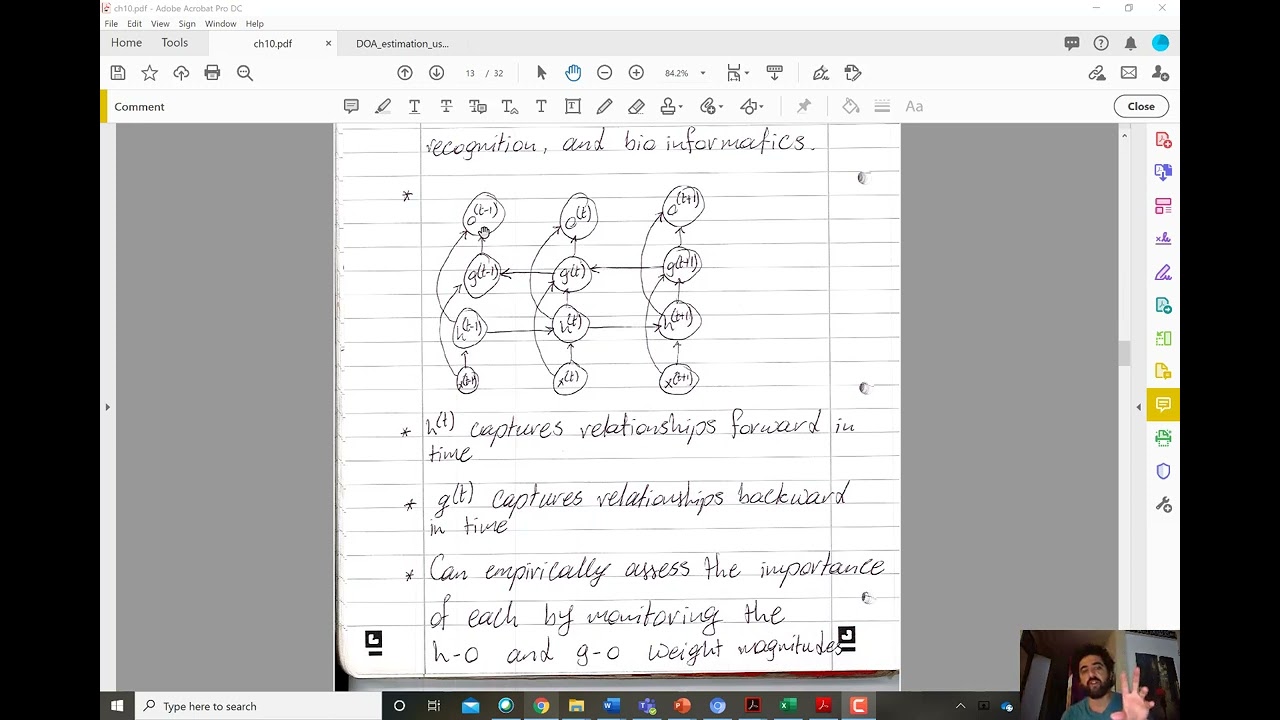 ch10.pdf - Adobe Acrobat Pro DC
File Edit View Sign Window Help
Home Tools ch10.pdf × DOA_estimation_us...
13 / 32 84.2%
Comment Aa Close
recognition, and bio informatics.
*
o(t-1) o(t) o(t+1)
g(t-1) g(t) g(t+1)
h(t-1) h(t) h(t+1)
x(t) x(t+1)
* h(t) captures relationships forward in
time
* g(t) captures relationships backward
in time
* Can empirically assess the importance
of each by monitoring the
h-o and g-o weight magnitudes
Type here to search